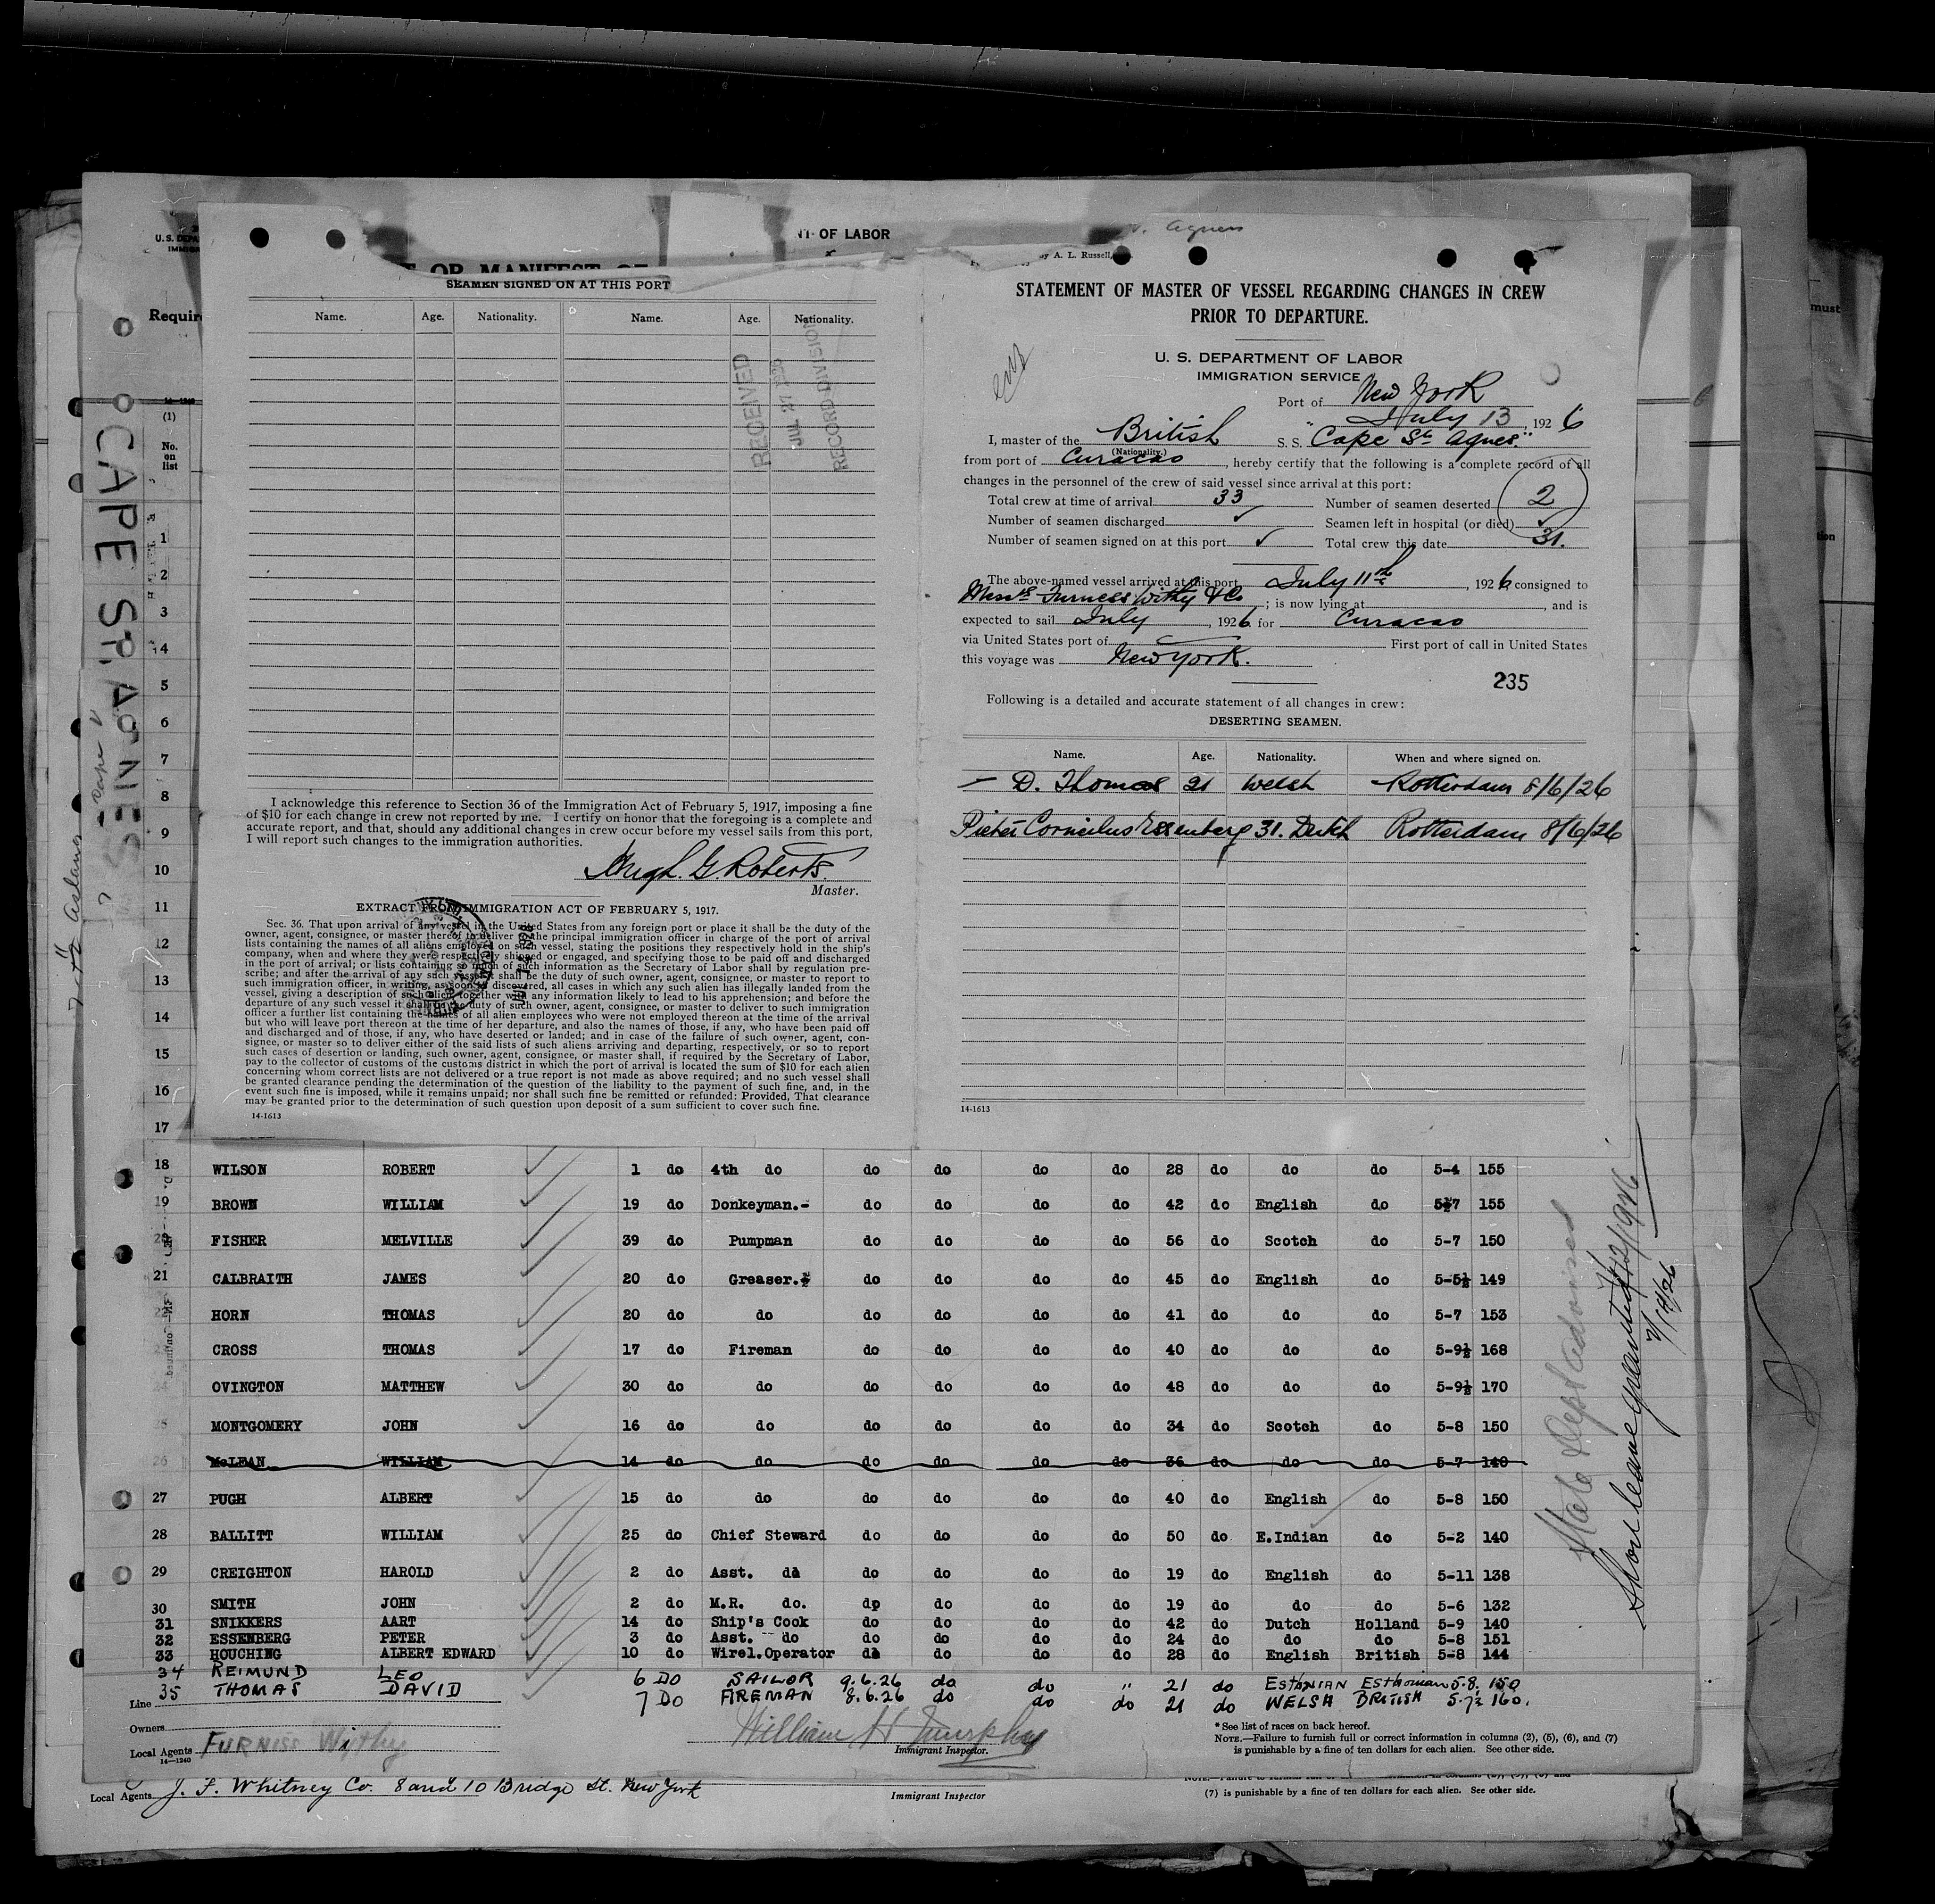 U.S. DEPA
NT OF LABOR
T OR MANIFEST OF
SEAMEN SIGNED ON AT THIS PORT
Name. Age. Nationality. Name. Age. Nationality.
RECEIVED
JUL 27 1926
RECORD DIVISION
I acknowledge this reference to Section 36 of the Immigration Act of February 5, 1917, imposing a fine
of $10 for each change in crew not reported by me. I certify on honor that the foregoing is a complete and
accurate report, and that, should any additional changes in crew occur before my vessel sails from this port,
I will report such changes to the immigration authorities.
Hugh. G. Roberts.
Master.
EXTRACT FROM IMMIGRATION ACT OF FEBRUARY 5, 1917.
Sec. 36. That upon arrival of any vessel in the United States from any foreign port or place it shall be the duty of the
owner, agent, consignee, or master thereof to deliver to the principal immigration officer in charge of the port of arrival
lists containing the names of all aliens employed on such vessel, stating the positions they respectively hold in the ship's
company, when and where they were respectively shipped or engaged, and specifying those to be paid off and discharged
in the port of arrival; or lists containing so much of such information as the Secretary of Labor shall by regulation pre-
scribe; and after the arrival of any such vessel it shall be the duty of such owner, agent, consignee, or master to report to
such immigration officer, in writing, as soon as discovered, all cases in which any such alien has illegally landed from the
vessel, giving a description of such alien, together with any information likely to lead to his apprehension; and before the
departure of any such vessel it shall be the duty of such owner, agent, consignee, or master to deliver to such immigration
officer a further list containing the names of all alien employees who were not employed thereon at the time of the arrival
but who will leave port thereon at the time of her departure, and also the names of those, if any, who have been paid off
and discharged and of those, if any, who have deserted or landed; and in case of the failure of such owner, agent, con-
signee, or master so to deliver either of the said lists of such aliens arriving and departing, respectively, or so to report
such cases of desertion or landing, such owner, agent, consignee, or master shall, if required by the Secretary of Labor,
pay to the collector of customs of the customs district in which the port of arrival is located the sum of $10 for each alien
concerning whom correct lists are not delivered or a true report is not made as above required; and no such vessel shall
be granted clearance pending the determination of the question of the liability to the payment of such fine, and, in the
event such fine is imposed, while it remains unpaid; nor shall such fine be remitted or refunded: Provided, That clearance
may be granted prior to the determination of such question upon deposit of a sum sufficient to cover such fine.
14-1613
Agnes
by A. L. Russell,
STATEMENT OF MASTER OF VESSEL REGARDING CHANGES IN CREW
PRIOR TO DEPARTURE.
U. S. DEPARTMENT OF LABOR
IMMIGRATION SERVICE
Port of New York
July 13, 1926
I, master of the British S. S. "Cape St. Agnes."
(Nationality.)
from port of Curacao, hereby certify that the following is a complete record of all
changes in the personnel of the crew of said vessel since arrival at this port:
Total crew at time of arrival 33 Number of seamen deserted 2
Number of seamen discharged ✓ Seamen left in hospital (or died) ✓
Number of seamen signed on at this port ✓ Total crew this date 31.
The above-named vessel arrived at this port July 11th, 1926 consigned to
Messrs Furness Withy & Co; is now lying at , and is
expected to sail July, 1926 for Curacao
via United States port of First port of call in United States
this voyage was New York.
235
Following is a detailed and accurate statement of all changes in crew:
DESERTING SEAMEN.
Name. Age. Nationality. When and where signed on.
– D. Thomas 21 Welsh Rotterdam 8/6/26
Pieter Cornielus Essenberg 31. Dutch Rotterdam 8/6/26
14-1613
Requir
(1)
No.
on
list
CAPE ST. AGNES
1
2
3
4
5
6
7
8
9
10
11
12
13
14
15
16
17
18 WILSON ROBERT 1 do 4th do do do do do 28 do do do 5-4 155
19 BROWN WILLIAM 19 do Donkeyman.- do do do do 42 do English do 5-7 155
20 FISHER MELVILLE 39 do Pumpman do do do do 56 do Scotch do 5-7 150
21 CALBRAITH JAMES 20 do Greaser. do do do do 45 do English do 5-5½ 149
22 HORN THOMAS 20 do do do do do do 41 do do do 5-7 153
23 CROSS THOMAS 17 do Fireman do do do do 40 do do do 5-9½ 168
24 OVINGTON MATTHEW 30 do do do do do do 48 do do do 5-9½ 170
25 MONTGOMERY JOHN 16 do do do do do do 34 do Scotch do 5-8 150
26 McLEAN WILLIAM 14 do do do do do do 36 do do do 5-7 140
27 PUGH ALBERT 15 do do do do do do 40 do English do 5-8 150
28 BALLITT WILLIAM 25 do Chief Steward do do do do 50 do E.Indian do 5-2 140
29 CREIGHTON HAROLD 2 do Asst. do do do do do 19 do English do 5-11 138
30 SMITH JOHN 2 do M.R. do. do do do do 19 do do do 5-6 132
31 SNIKKERS AART 14 do Ship's Cook do do do do 42 do Dutch Holland 5-9 140
32 ESSENBERG PETER 3 do Asst. do do do do do 24 do do do 5-8 151
33 HOUCHING ALBERT EDWARD 10 do Wirel.Operator do do do do 28 do English British 5-8 144
34 REIMUND LEO 6 DO SAILOR 9.6.26 do do " 21 do ESTHNIAN Esthonian 5.8. 150
35 THOMAS DAVID 7 DO FIREMAN 8.6.26 do do do 21 do WELSH BRITISH 5.7½ 160.
Line
Owners
Local Agents FURNISS Withy
14-1240
William H Murphy
Immigrant Inspector.
* See list of races on back hereof.
NOTE.—Failure to furnish full or correct information in columns (2), (5), (6), and (7)
is punishable by a fine of ten dollars for each alien. See other side.
Shore leave granted 7/12/1926
7/14/26
Local Agents J. F. Whitney Co. 8 and 10 Bridge St. New York
Immigrant Inspector
(7) is punishable by a fine of ten dollars for each alien. See other side.
must